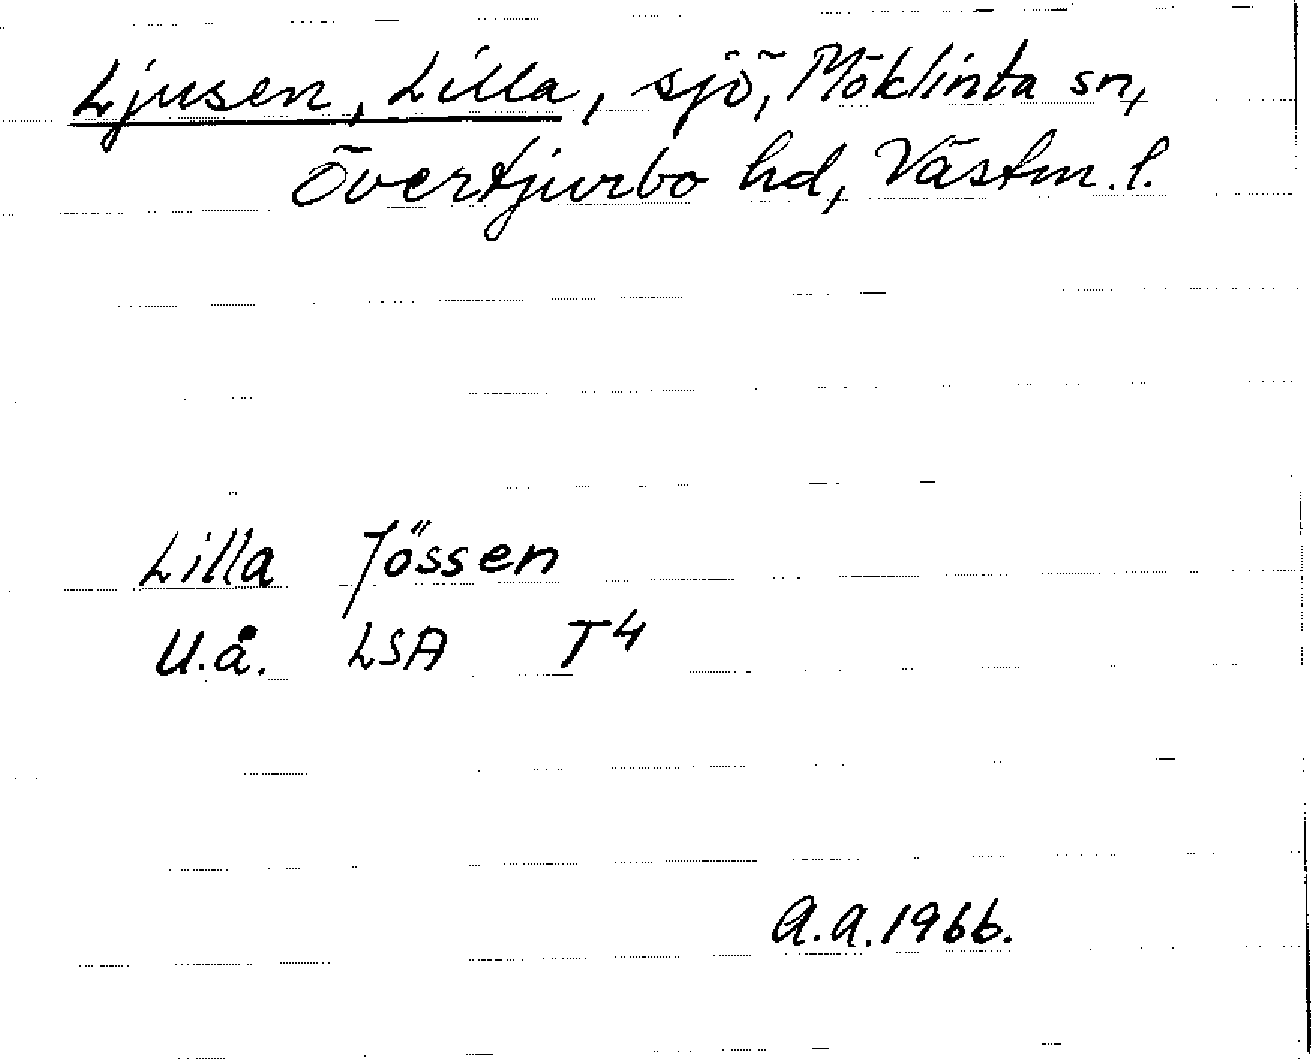 Ljusen, Lilla, sjö, Möklinta sn,
Övertjurbo hd, Västm. l.
Lilla Jössen
U.å. LSA T4
A.A. 1966.